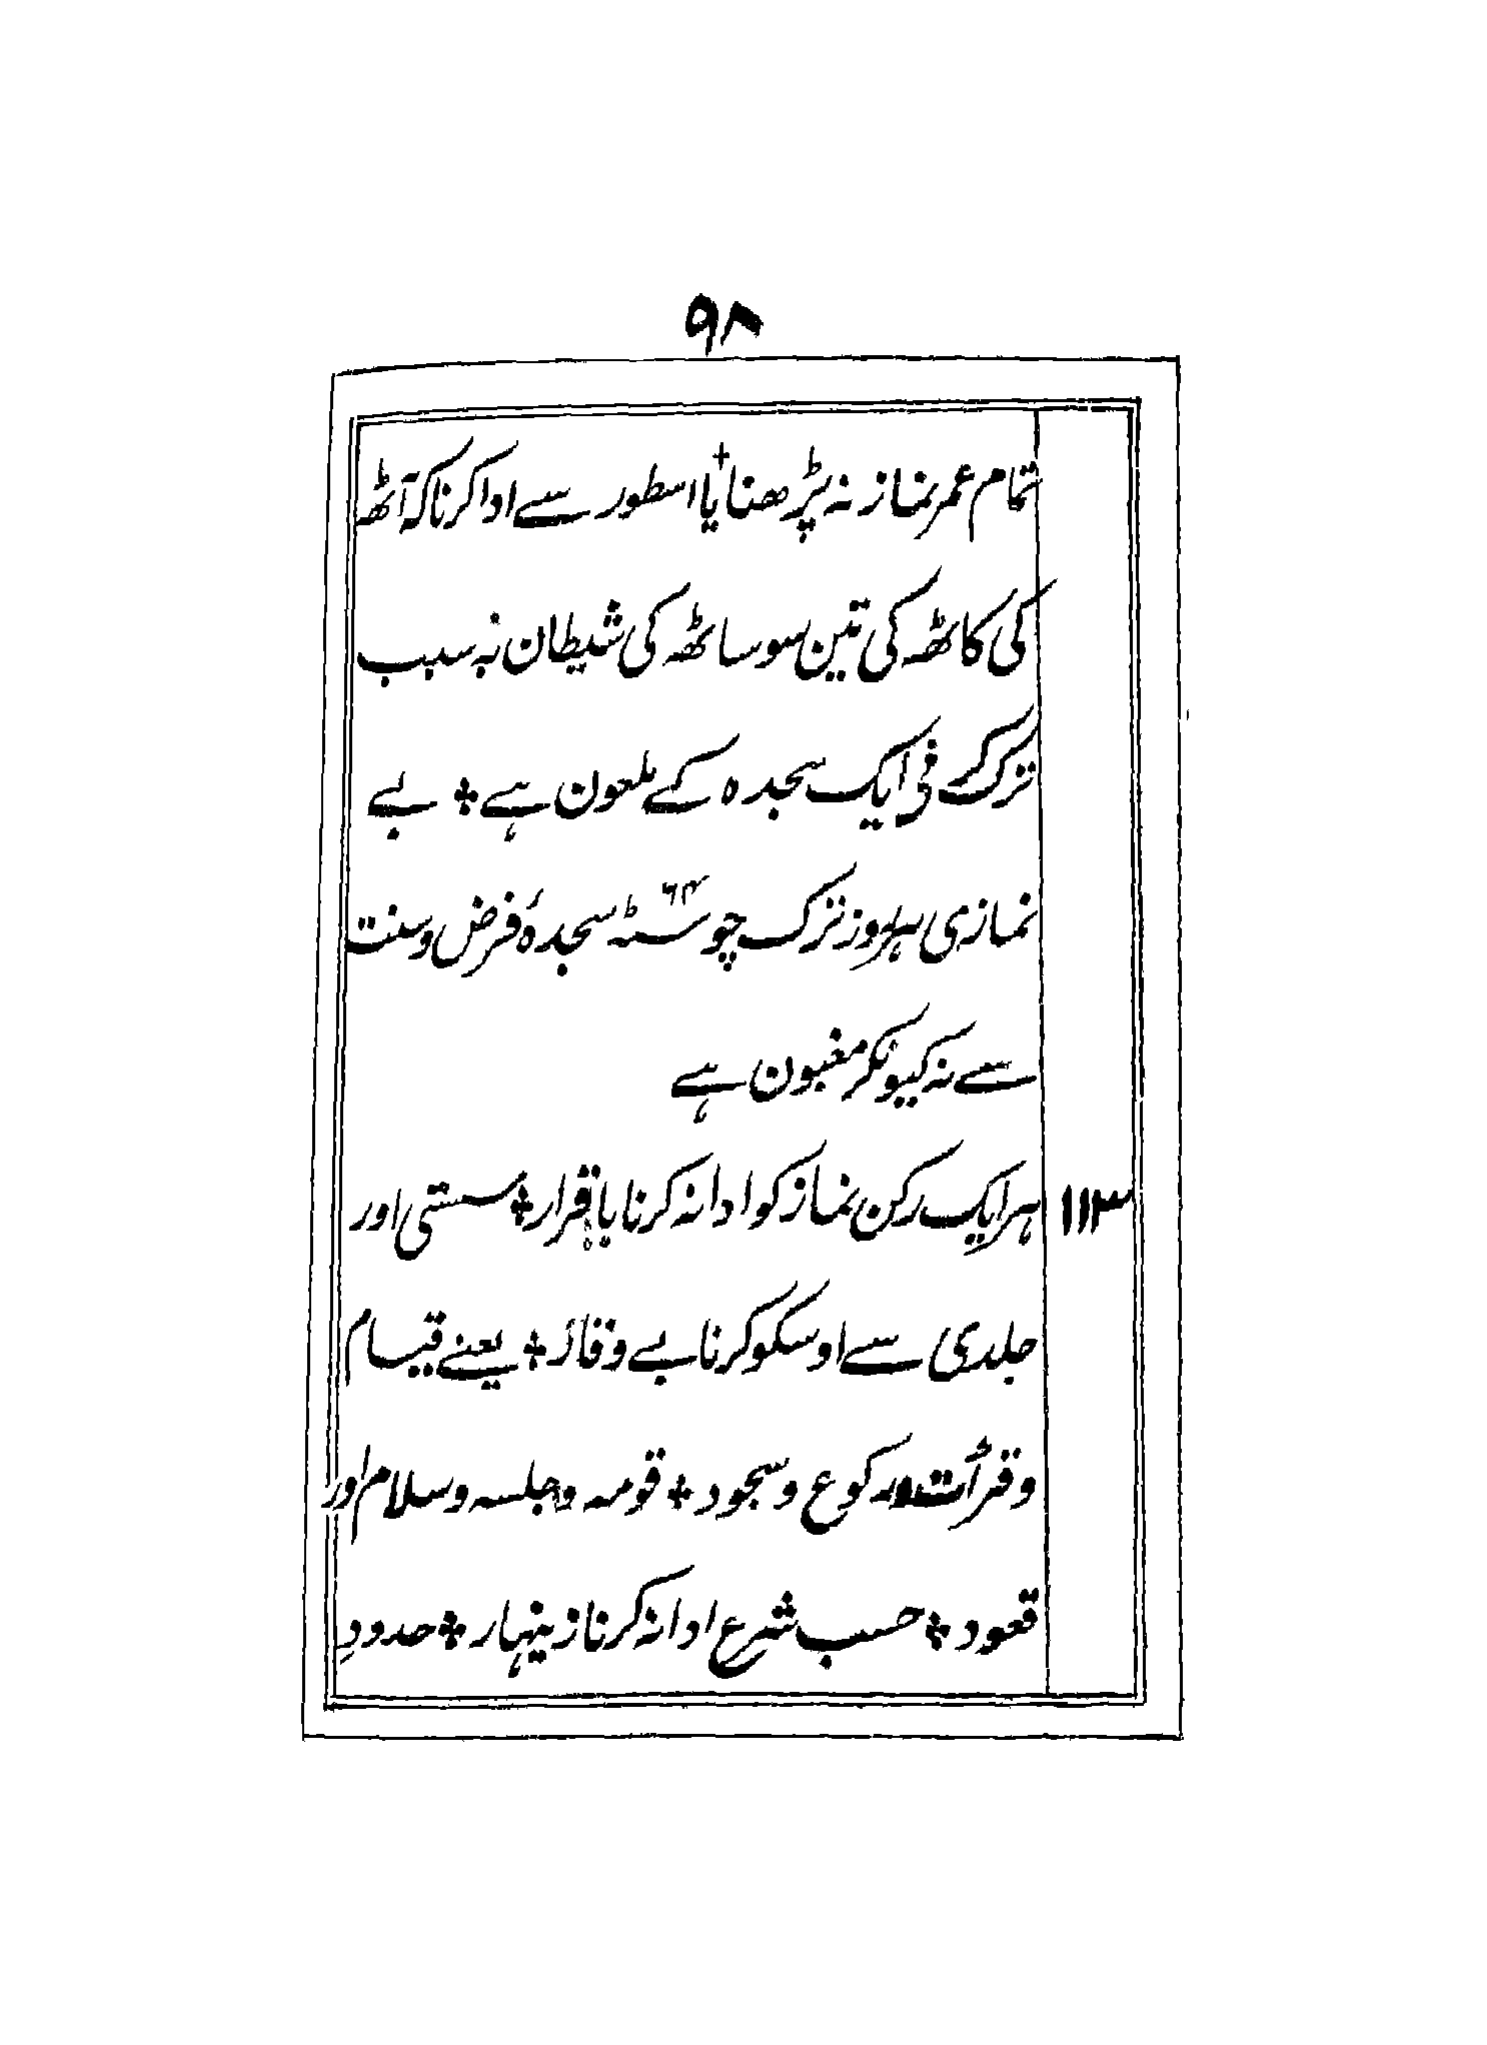 ۹۸
تمام عمر نماز نہ پڑھنا + یا اسطور سے ادا کرنا کہ آٹھ
کی کاٹھ کی تین سو ساٹھ کی شیطان بہ سبب
ترک کرنے ایک سجدہ کے ملعون ہے ❖ بے
نمازی ہرروز ترک چوسٹہ ۶۴ سجدۂ فرض و سنت
سے نہ کیونکر مغبون ہے
۱۱۳ ہر ایک رکن نماز کو ادا نہ کرنا باقرار ❖ سستی اور
جلدی سے اوسکو کرنا بے وقار ❖ یعنے قیام
و قرأت و رکوع و سجود ❖ قومہ و جلسہ و سلام اور
قعود ❖ حسب شرع ادا نہ کرنا زینہار ❖ حدودِ